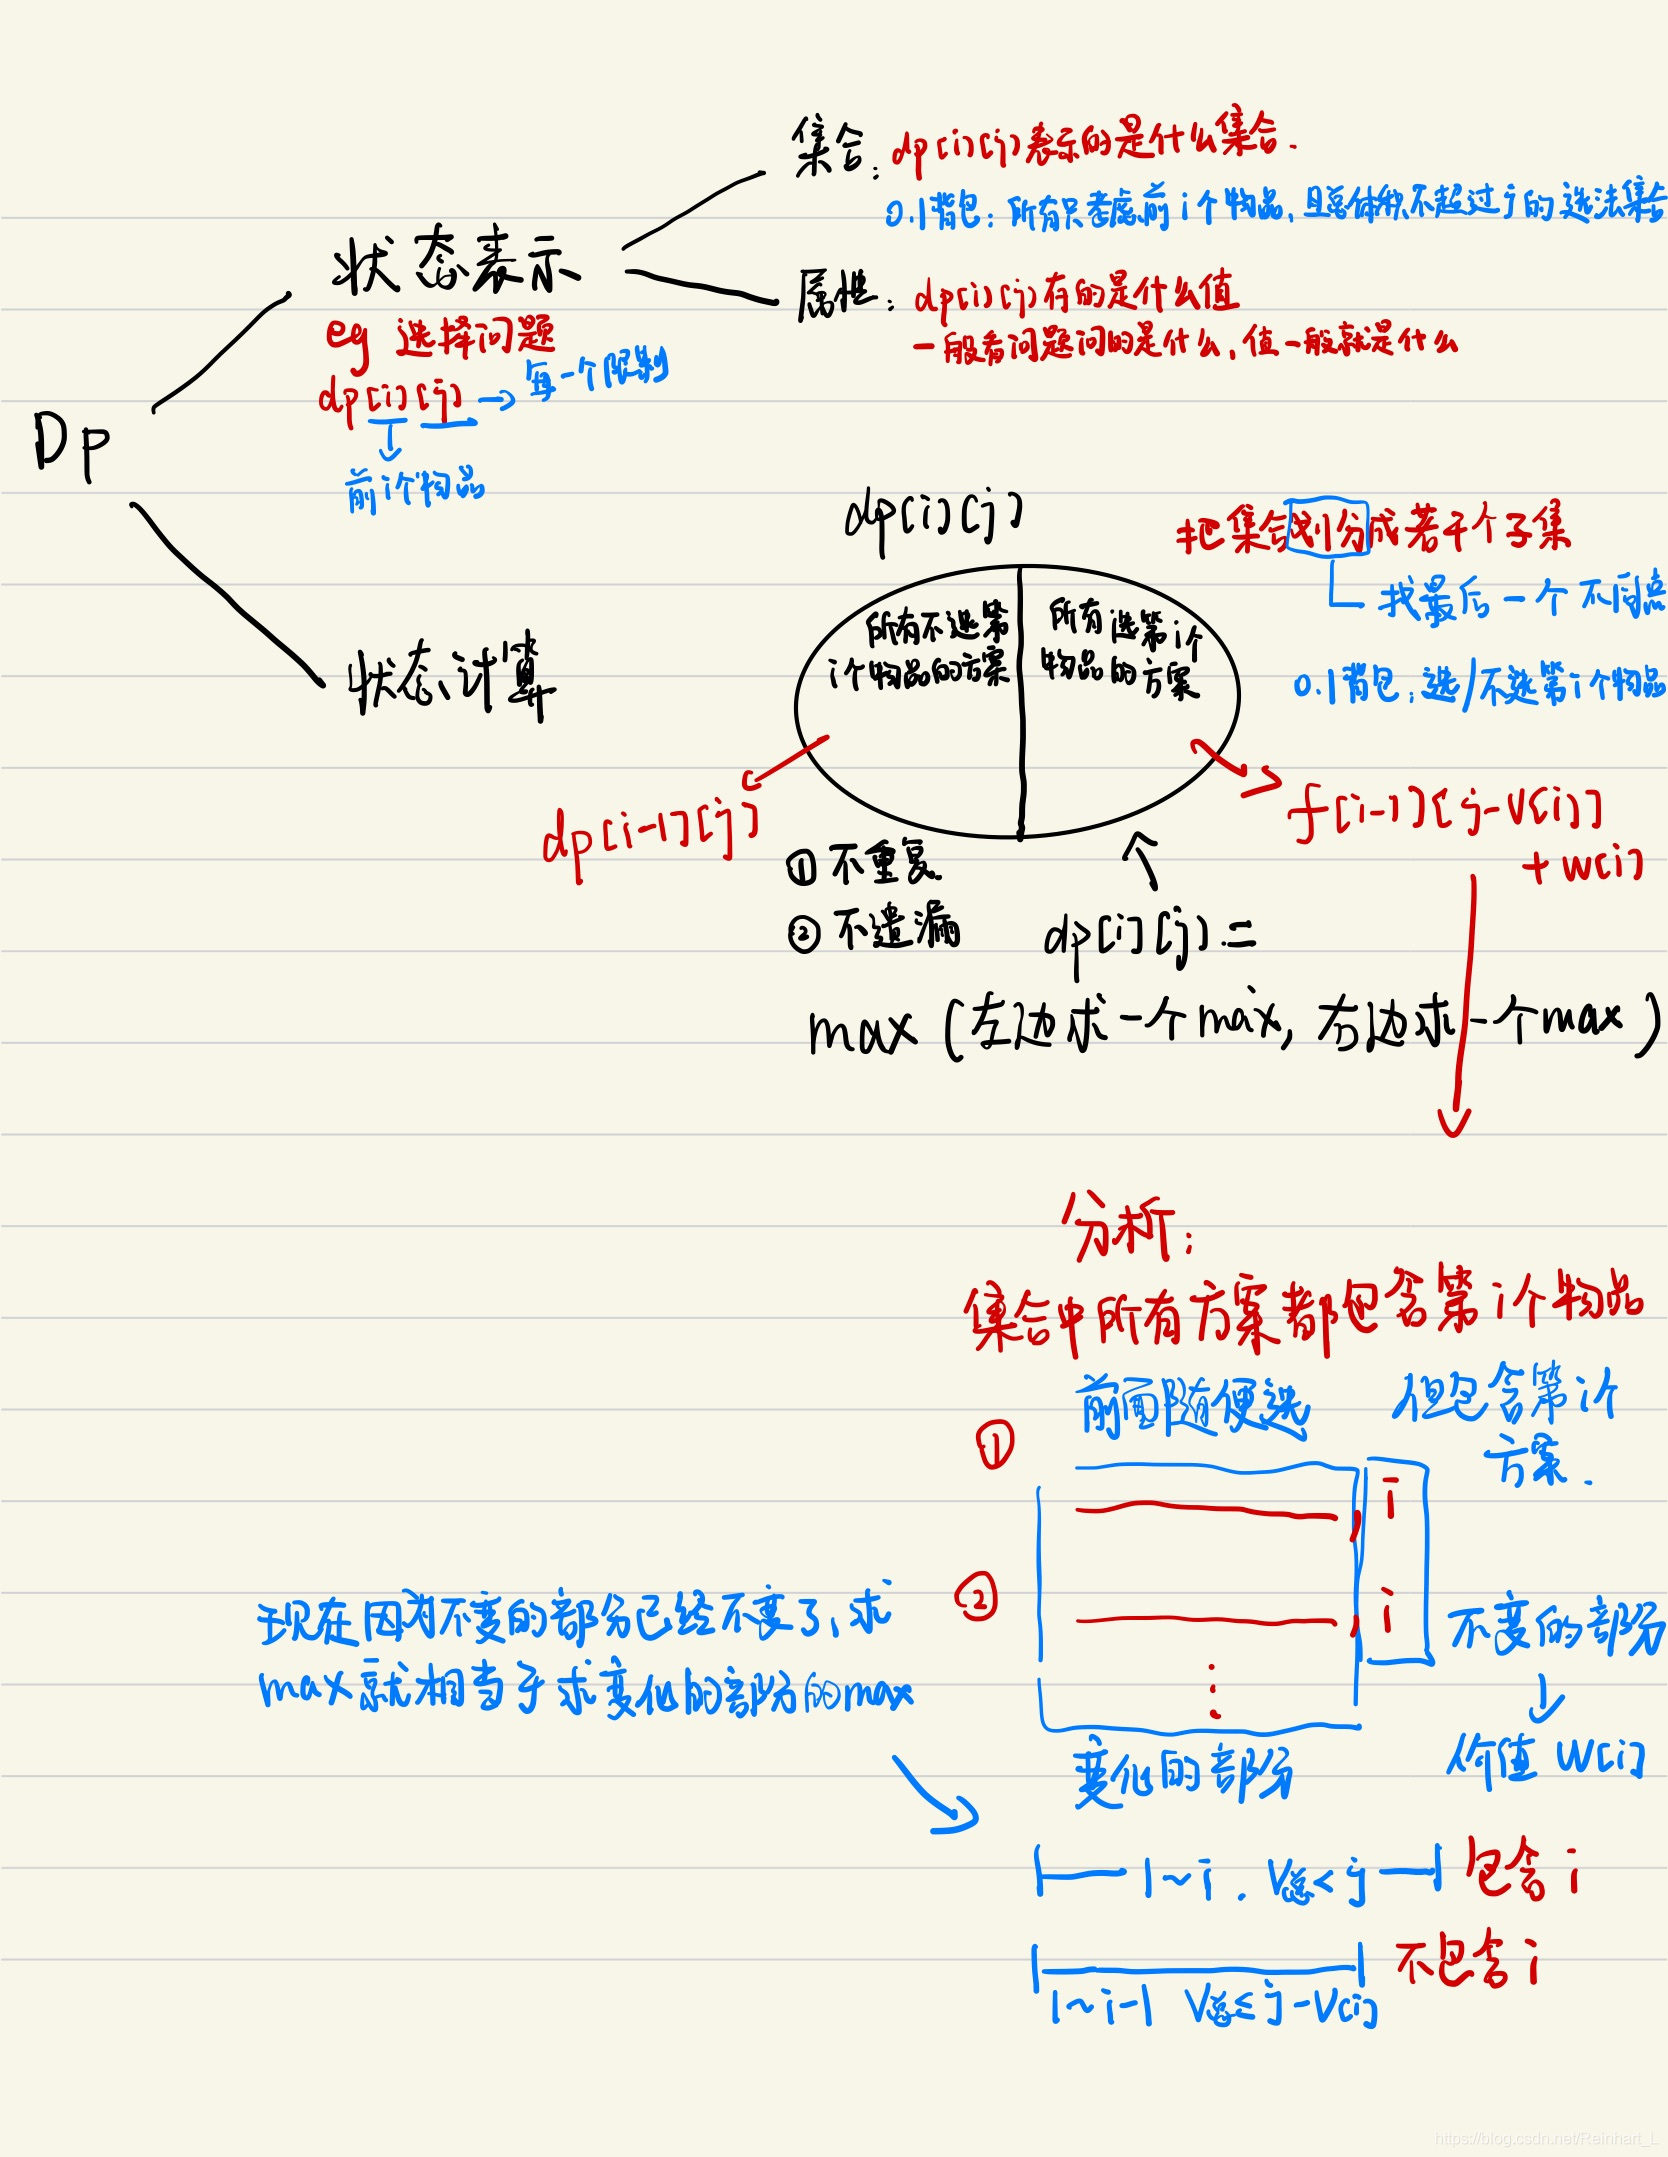 集合：dp[i][j]表示的是什么集合.
0.1背包：所有只考虑前i个物品，且总体积不超过j的选法集合
状态表示
属性：dp[i][j]存的是什么值
一般看问题问的是什么，值一般就是什么
eg 选择问题
dp[i][j] → 每一个限制
前i个物品
Dp
dp[i][j]
把集合划分成若干个子集
找最后一个不同点
所有不选第
i个物品的方案
所有选第i个
物品的方案
状态计算
0.1背包：选/不选第i个物品
dp[i-1][j]
f[i-1][j-V[i]]
+ w[i]
① 不重复
② 不遗漏
dp[i][j] =
max (左边求一个max, 右边求一个max)
分析：
集合中所有方案都包含第i个物品
前面随便选
但包含第i个
方案.
①
, i
②
, i
不变的部分
现在因为不变的部分已经不变了，求
max就相当于求变化的部分的max
变化的部分
价值 W[i]
1~i. V总<j 包含i
不包含i
1~i-1 V总≤j-V[i]
https://blog.csdn.net/Reinhart_L